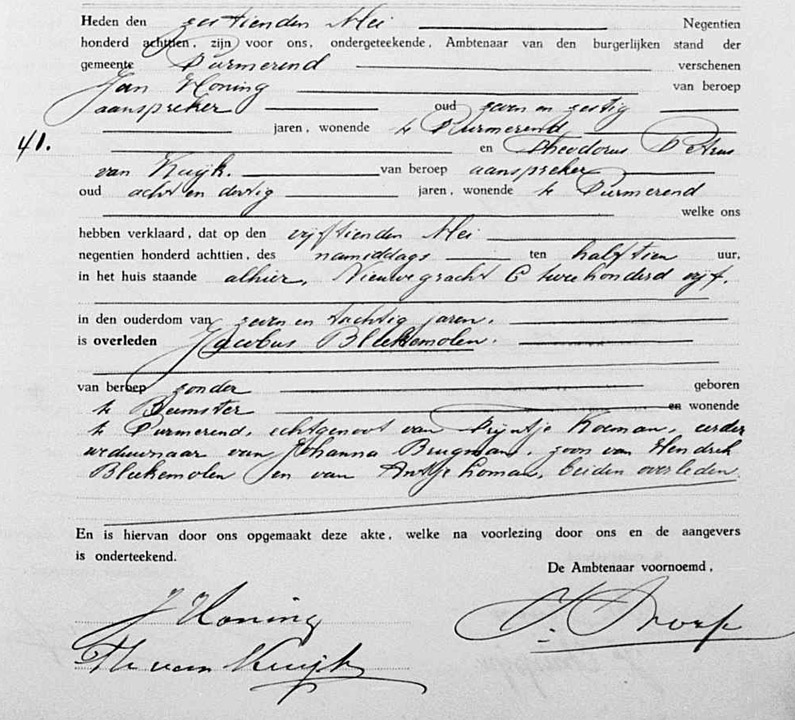 Heden den zestienden Mei Negentien
honderd achttien, zijn voor ons, ondergeteekende, Ambtenaar van den burgerlijken stand der
gemeente Purmerend verschenen
Jan Honing van beroep
aanspreker oud zeven en zestig
jaren, wonende te Purmerend
41.
en Theodorus Petrus
van Kuijk. van beroep aanspreker
oud acht en dertig jaren, wonende te Purmerend
welke ons
hebben verklaard, dat op den vijftienden Mei
negentien honderd achttien, des namiddags ten half tien uur,
in het huis staande alhier, Nieuwegracht C twee honderd vijf.
in den ouderdom van zeven en tachtig jaren.
is overleden Jacobus Bleekemolen.
van beroep zonder geboren
te Beemster en wonende
te Purmerend, echtgenoot van Trijntje Koeman, eerder
weduwnaar van Johanna Brugman, zoon van Hendrik
Bleekemolen en van Antje Homan, beiden overleden.
En is hiervan door ons opgemaakt deze akte, welke na voorlezing door ons en de aangevers
is onderteekend.
De Ambtenaar voornoemd,
J Honing
Th van Kuijk